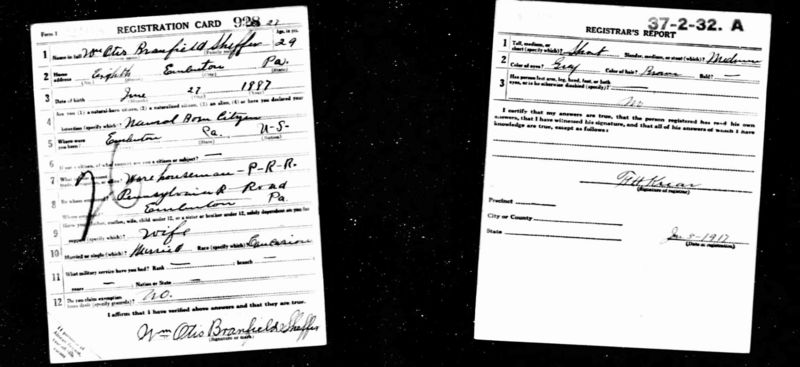 Form 1
REGISTRATION CARD 928 27
Age, in yrs.
1 Name in full Wm Otis Branfield Sheffer 29
2 Home address Eighth Emlenton Pa.
3 Date of birth June 27 1887
Are you (1) a natural-born citizen, (2) a naturalized citizen, (3) an alien, (4) or have you declared your
4 intention (specify which)? Natural Born Citizen
5 Where were you born? Emlenton Pa. U-S-
6 If not a citizen, of what country are you a citizen or subject? —
7 Warehouseman - P-R-R.
8 By whom employed? Pennsylvania R Road
Emlenton Pa.
9 Have you a father, mother, wife, child under 12, or a sister or brother under 12, solely dependent on you for support (specify which)? Wife
10 Married or single (which)? Married Race (specify which)? Caucasian
11 What military service have you had? Rank — branch —
years — Nation or State —
12 Do you claim exemption from draft (specify grounds)? No.
I affirm that I have verified above answers and that they are true.
Wm Otis Branfield Sheffer
(Signature or mark)
37-2-32. A
REGISTRAR'S REPORT
1 Tall, medium, or short (specify which)? Short Slender, medium, or stout (which)? Medium
2 Color of eyes? Gray Color of hair? Brown Bald? —
3 Has person lost arm, leg, hand, foot, or both eyes, or is he otherwise disabled (specify)?
No
I certify that my answers are true, that the person registered has read his own
answers, that I have witnessed his signature, and that all of his answers of which I have
knowledge are true, except as follows:
(Signature of registrar)
Precinct
City or County
State
5-1917
(Date of registration)